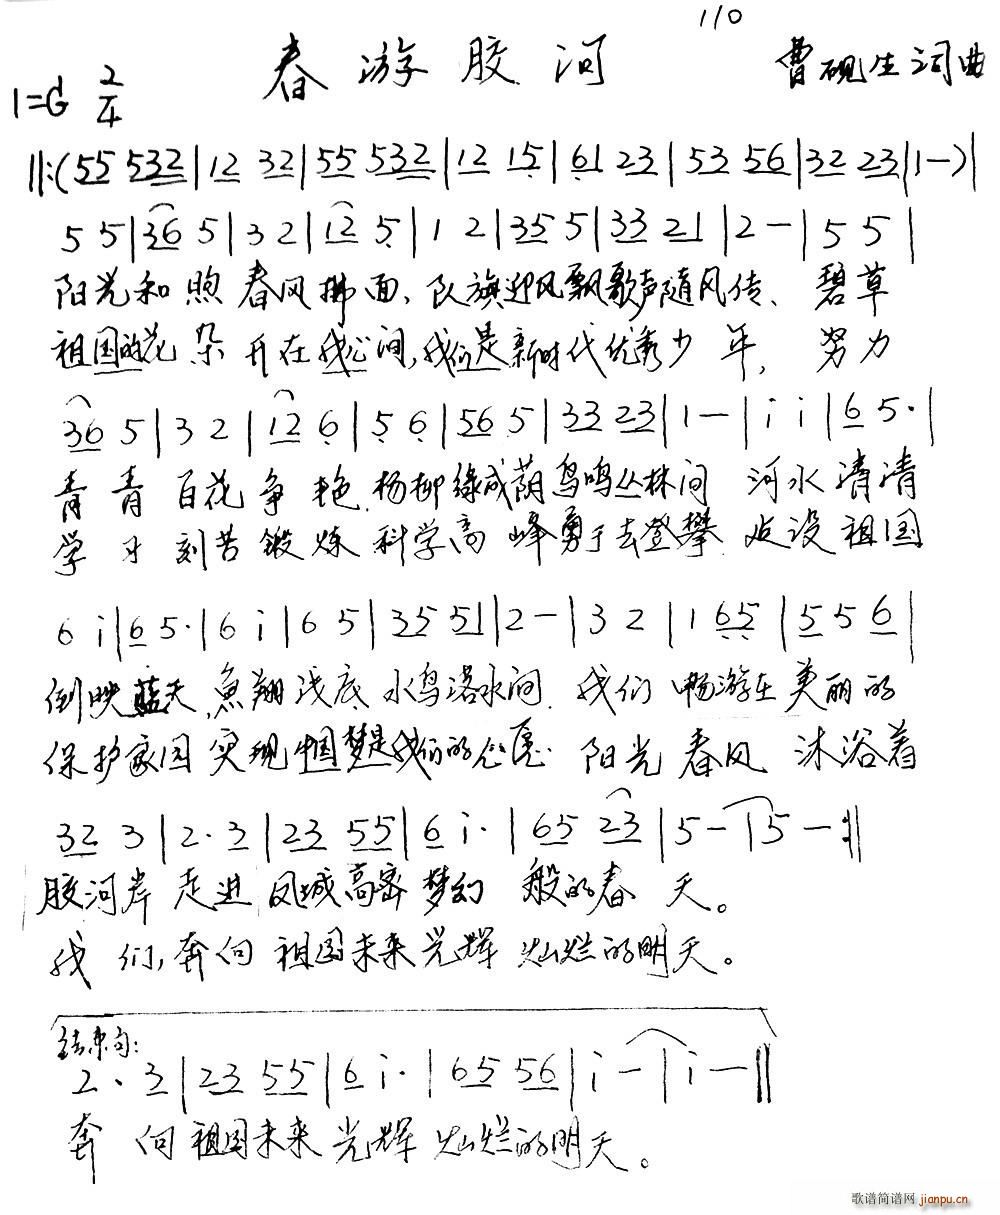 110
春游胶河
曹砚生词曲
1=G 2/4
||:(55 532|12 32|55 532|12 15|61 23|53 56|32 23|1-)|
5 5|36 5|3 2|12 5|1 2|35 5|33 21|2-|5 5|
阳光和煦春风拂面,队旗迎风飘歌声随风传、碧草
祖国的花朵开在我心间,我们是新时代优秀少年,努力
36 5|3 2|12 6|5 6|56 5|33 23|1-|i i|6 5·|
青青百花争艳杨柳绿成荫鸟鸣丛林间河水清清
学习刻苦锻炼科学高峰勇于去登攀设祖国
6 i|6 5·|6 i|6 5|35 51|2-|3 2|1 65|5 5 6|
倒映蓝天,鱼翔浅底水鸟落水间.我们畅游在美丽的
保护家园实现中国梦是我们的心愿阳光春风沐浴着
32 3|2·3|23 55|6 i·|65 23|5-|5-:||
胶河岸走进凤城高密梦幻般的春天。
我们,奔向祖国未来光辉灿烂的明天。
结束句:
2·3|23 55|6 i·|65 56|i-|i-||
奔向祖国未来光辉灿烂的明天。
歌谱简谱网
jianpu.cn